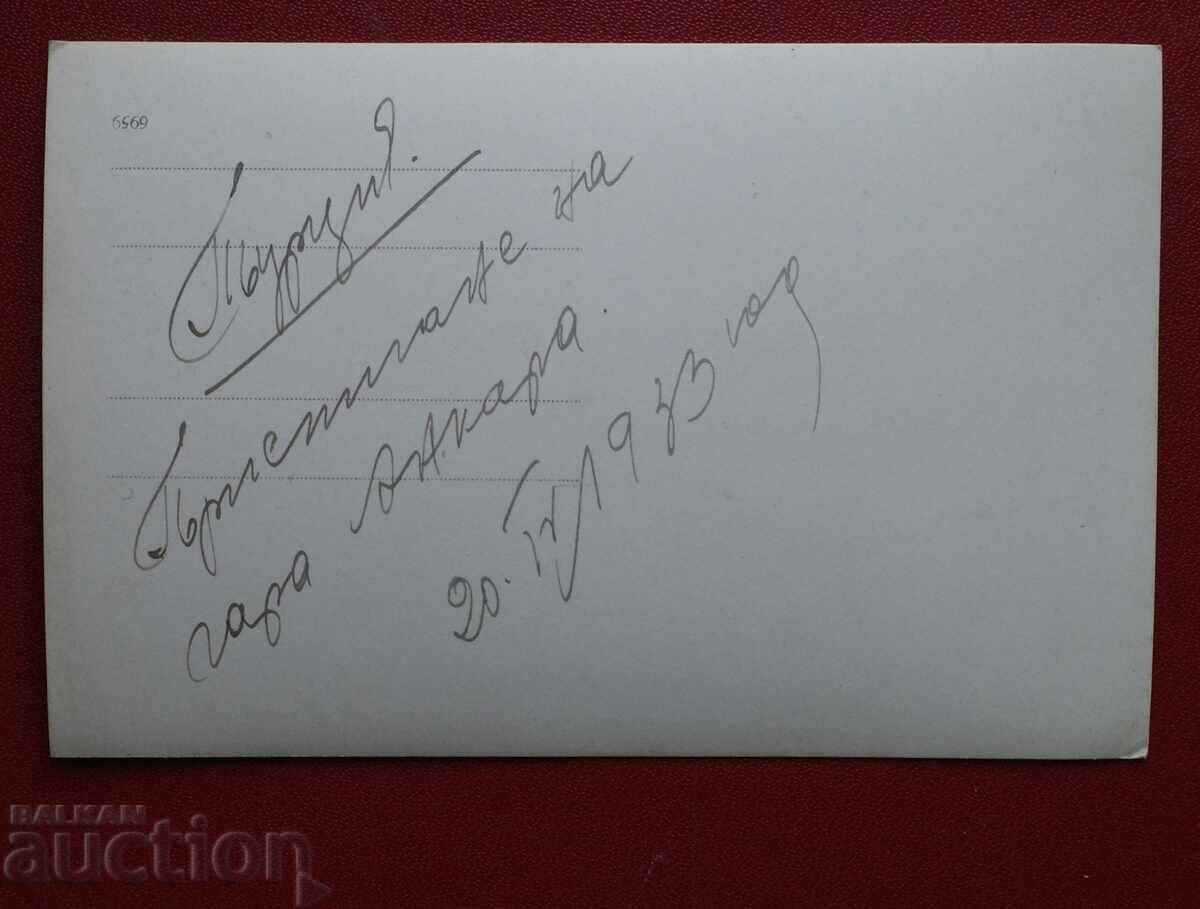 6959
Турция.
Пристигане на
гара Анкара.
20. IV 1933 год
BALKAN
auction